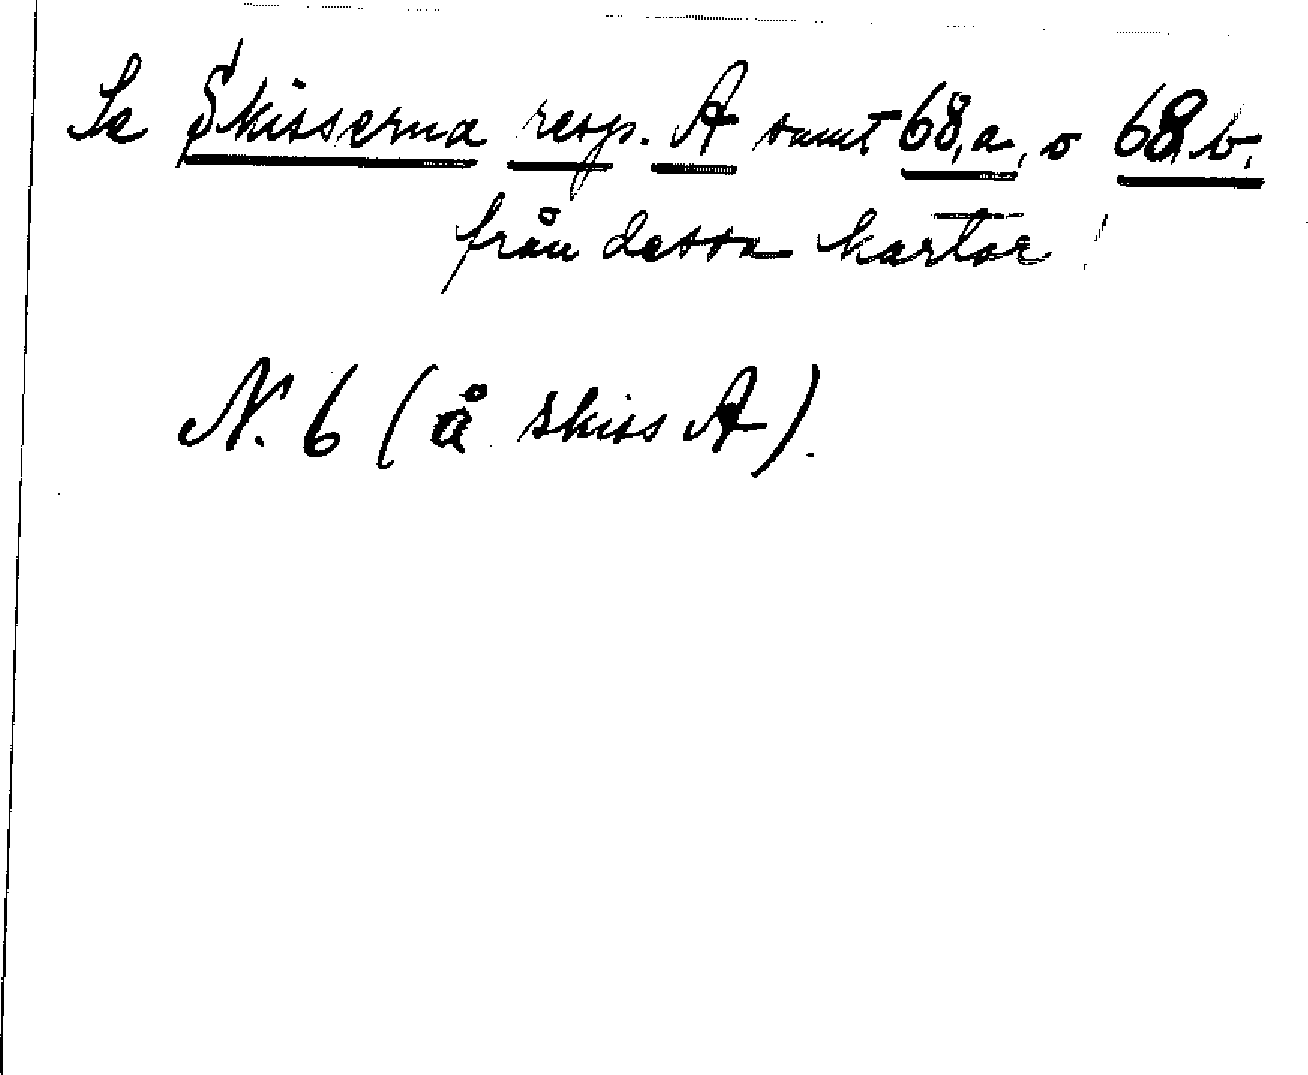 Se Skisserna resp. A samt 68,a, o 68,b.
från dessa kartor!
N. 6 (å skiss A).